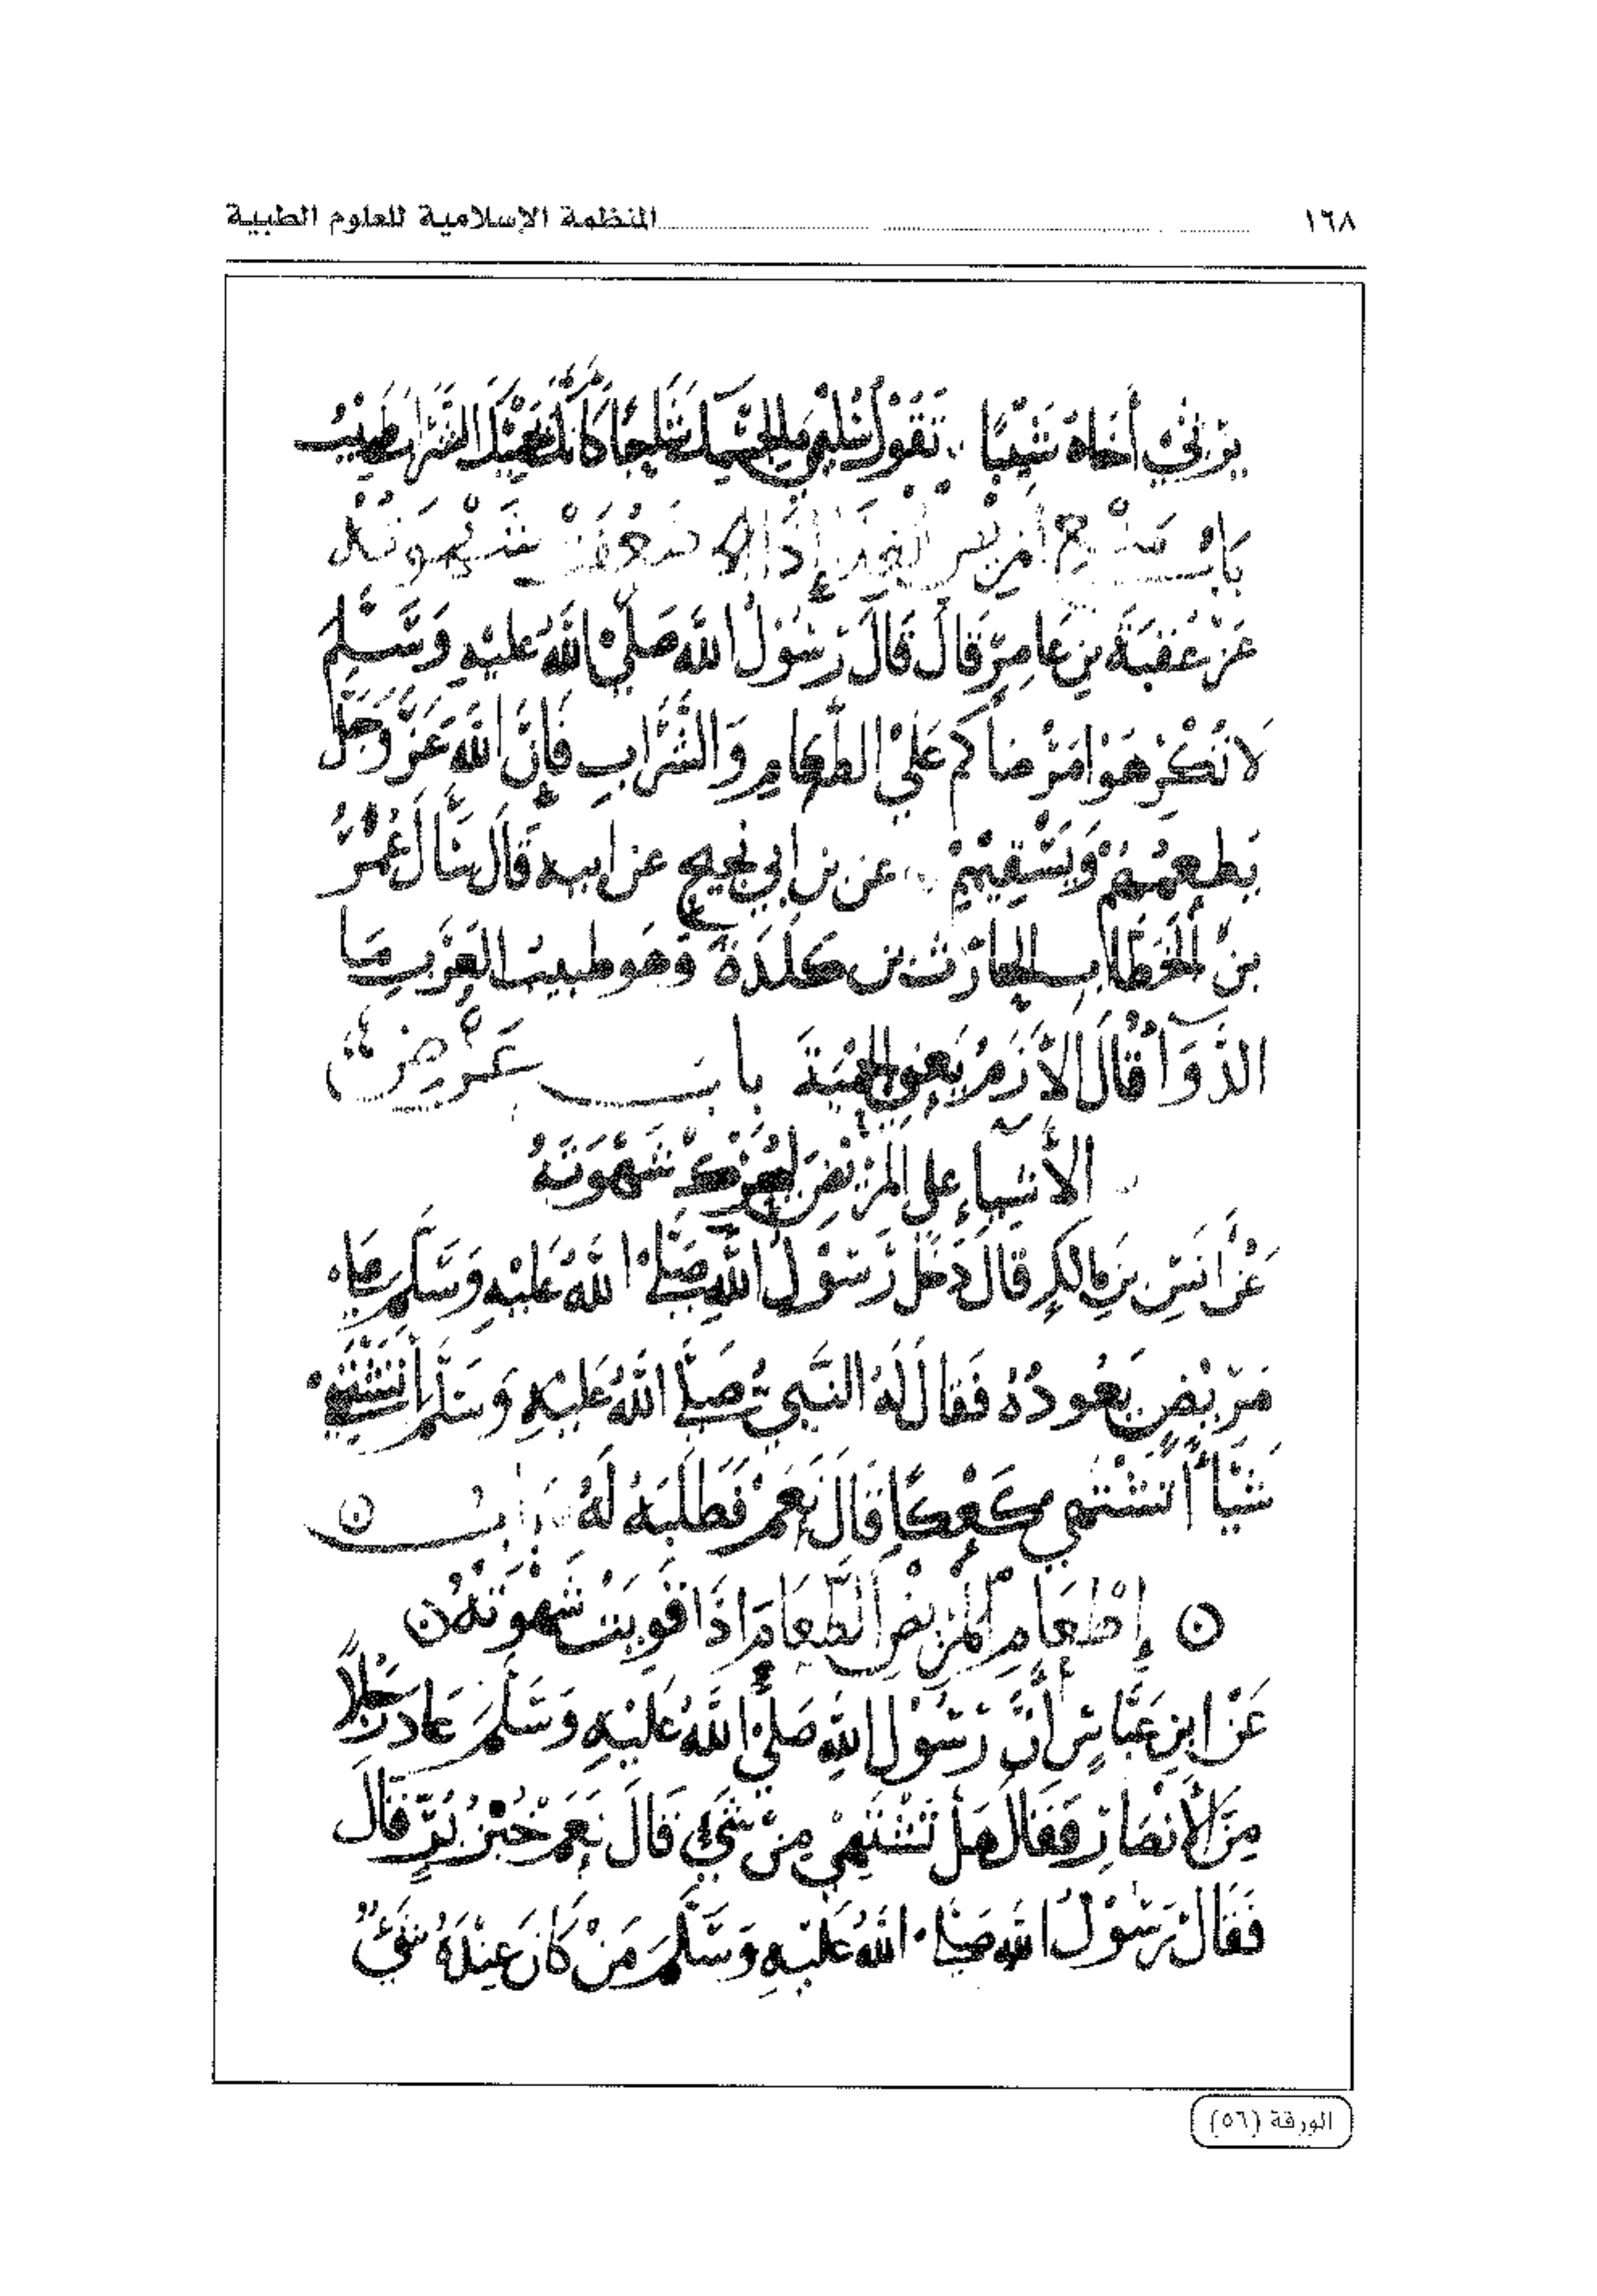 ١٦٨ المنظمة الإسلامية للعلوم الطبية
يرثي أخاه شيبا تقول
باب إذا
عَنْ عُقْبَةَ بنِ عَامِرٍ قَالَ قَالَ رَسُوْلُ اللّهِ صَلَّىْ اللّهُ عَلَيْهِ وَسَّلَم
لَا تُكْرِهَوْا مَرْضَاكم عَلَىْ الطَّعَامِ وَالشَّرَابِ فَإِنَّ اللّهَ عَزَّ وَجَلَّ
يُطعِمُهُمْ وَيَسْقِيْهِمْ عن بن ابي نجيح عن ابيه قَالَ سَأَلَ عُمَرُ
بنُ الْخَطَّابِ الحارَث بن كَلَدَةَ وَهو طبيبُ العَرَبِ مَا
الدَّوَآ قَالَ الأَزمُ يَعني الحِمْيَةَ باب عَرْضِ
الأَشيآءِ على المَرْيْضَ شَهْوَتَهُ
عَنْ أَنَسِ بنِ مالكٍ قالَ دَخَلَ رَسَوْلُ اللّهِ صَلَّىْ اللّهُ عَلَيْهِ وَسَّلَم علي
مَرْيْضٍ يَعُودُهُ فَقالَ لَهُ النَّبيُّ صَلَّي اللّهُ عَلَيْهِ وَسَلَّم أَتَشْتَهِي
شَيْأً أَتَشْتَهي كَعْكًا قَالَ نَعَمْ فَطَلَبَهُ لَهُ بَابُ
إِطْعَامِ الْمَرْيضِ الطَّعَامَ اذَا قَوِيَتْ شَهْوتَهُ
عَنْ ابنِ عَبَّاسٍ أَنَّ رَسُوْلَ اللّهِ صَلَّىْ اللّهُ عَلَيْهِ وَسَلَّمَ عَادَ رَجُلًا
مِنَ الأَنْصَارِ فَقَالَ هَلْ تَشْتَهِيْ مِنْ شَيْءٍ قَالَ نَعَمْ خُبْزُ بُرٍّ قَالَ
فَقَالَ رَسْوْلُ اللّهِ صَلَّى اللّهُ عَلَيْهِ وَسَّلَمَ مَنْ كَانَ عِنْدَهُ شَيْءٌ
الورقة (٥٦)